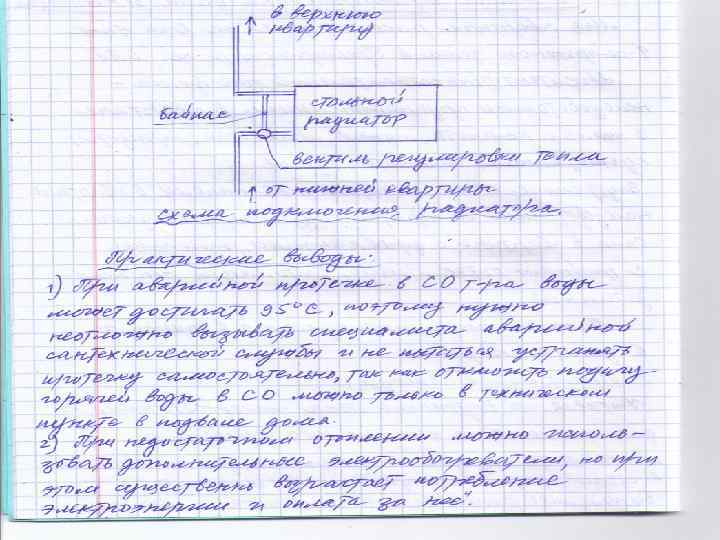 в верхнюю
квартиру
стольной
радиатор
байпас
вентиль регулировки тепла
от нижней квартиры
схема подключения радиатора.
Практические выводы:
1) При аварийной протечке в СО т-ра воды
может достигать 95°С, поэтому нужно
неотложно вызывать специалиста аварийной
сантехнической службы и не пытаться устранять
протечку самостоятельно, так как отключить подачу
горячей воды в СО можно только в техническом
пункте в подвале дома.
2) При недостаточном отоплении можно исполь-
зовать дополнительные электрообогреватели, но при
этом существенно возрастает потребление
электроэнергии и оплата за неё".